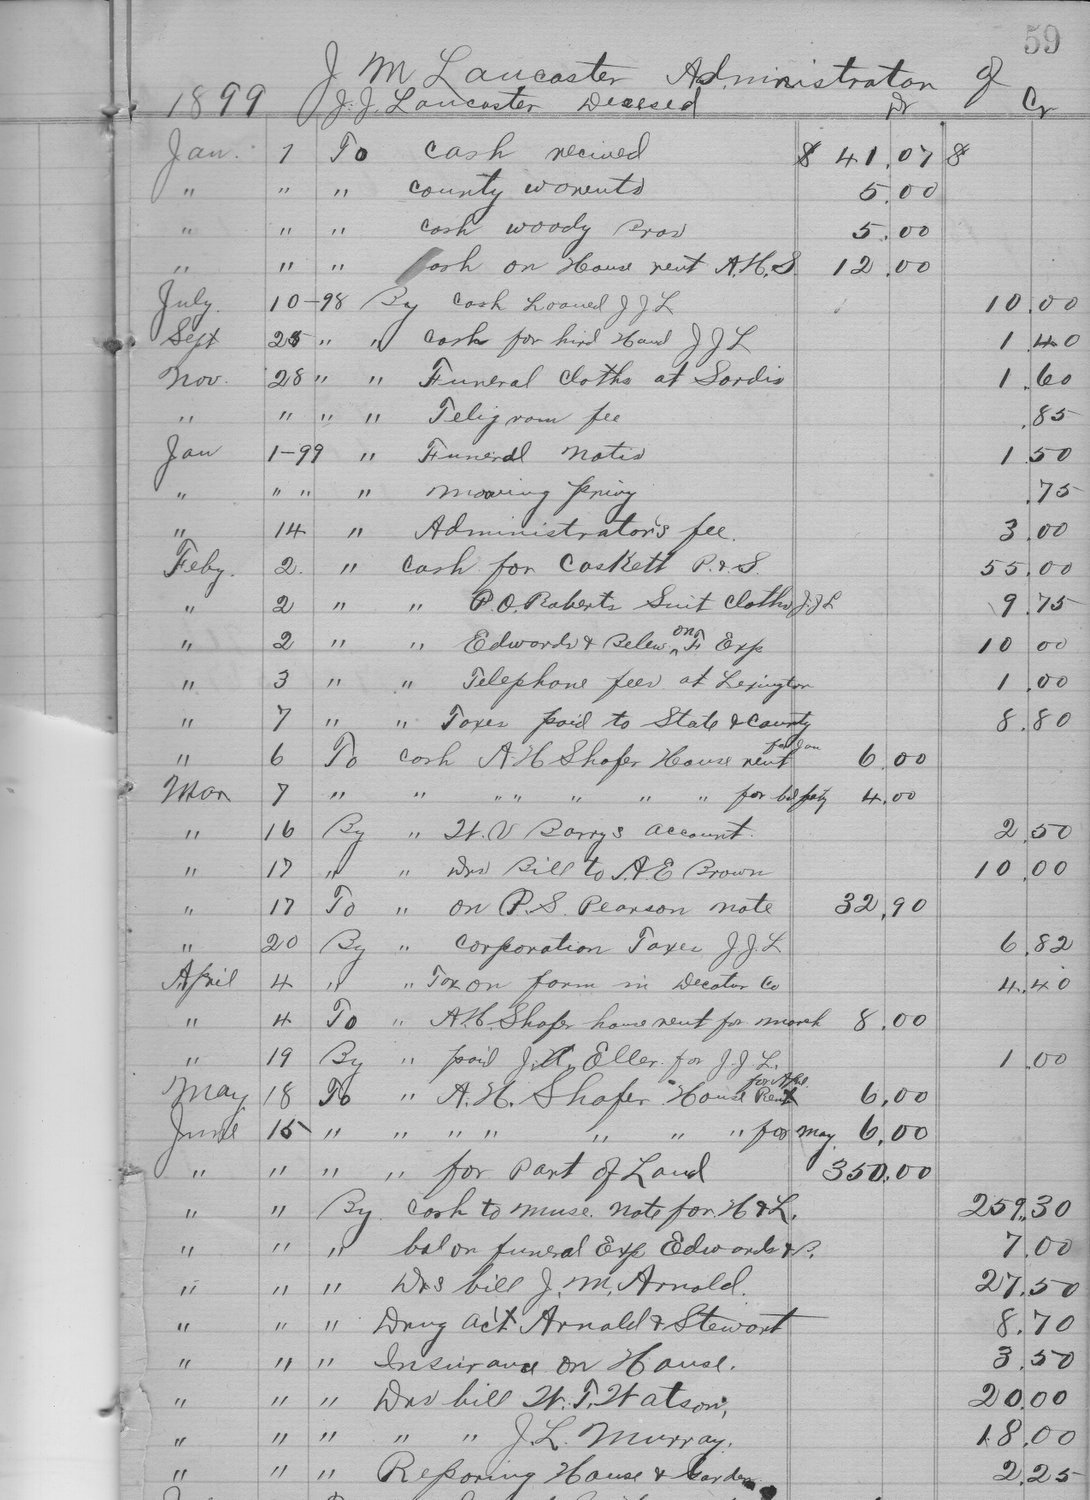 59
J M Lancaster Administrator of
1899 J. J. Lancaster Decesed Dr Cr
Jan. 1 To cash recived $ 41.07 $
" " " county warents 5.00
" " " cash woody Bros 5.00
" " " cash on House rent A.H.S 12.00
July. 10-98 By cash Loaned J J L 10.00
Sept 25 " " cash for hird Hand J J L 1.40
Nov. 28 " " Funeral cloths at Sardis 1.60
" " " " Teligram fee .85
Jan 1-99 " Funeral Notis 1.50
" " " " moving privy .75
" 14 " Administrator's fee. 3.00
Feby. 2 " cash for Caskett P. & S. 55.00
" 2 " " P.O. Roberts Suit cloths J.J.L 9.75
" 2 " " Edwards & Belew on F Exp 10.00
" 3 " " Telephone fees at Lexington 1.00
" 7 " " Taxes paid to State & County 8.80
" 6 To cash A H Shafer House rent for Jan 6.00
Mar 7 " " " " " " " for 4.00
" 16 By " W. V Barrys account. 2.50
" 17 " " Drs Bill to A.E Brown 10.00
" 17 To " on P.S. Pearson note 32.90
" 20 By " corporation Taxes J.J.L 6.82
April 4 " " Tax on farm in Decatur Co 4.40
" 4 To " A.H. Shafer house rent for march 8.00
" 19 By " paid J. Eller for J.J.L. 1.00
May, 18 To " A.H. Shafer House Rent for Apl. 6.00
June 15 " " " " " " " for may, 6.00
" " " " for Part of Land 350.00
" " By cash to muse. note for. H & L. 259.30
" " " bal on funeral Exp Edwards & B. 7.00
" " " Drs bill J. M. Arnold. 27.50
" " " Drug act Arnold & Stewort 8.70
" " " Insurance on House. 3.50
" " " Drs bill W. T. Watson, 20.00
" " " " " J. L. Murray. 18.00
" " " Reparing House & Garden 2.25